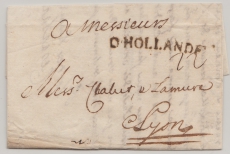 a Messieurs
D'HOLLANDE
Mess.rs & Lamure
Lyon